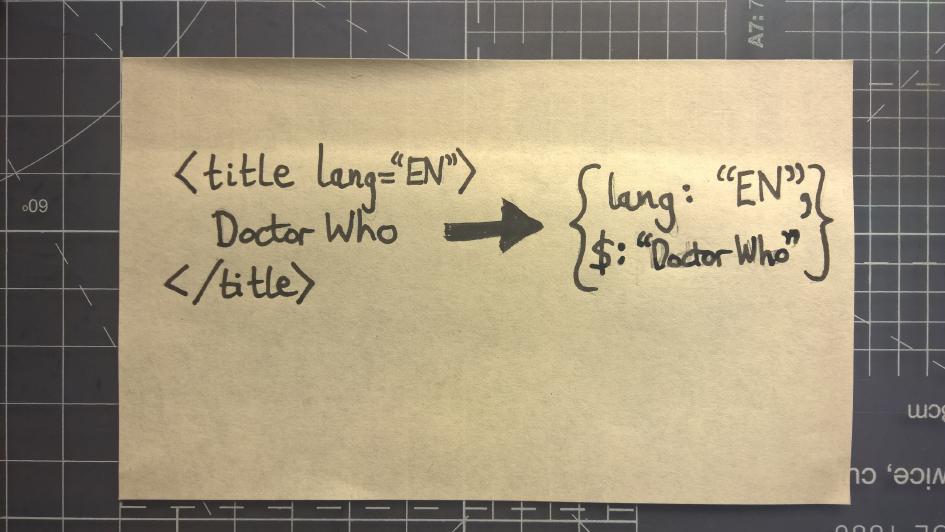 <title lang="EN">
Doctor Who
</title>
{ lang: "EN",
$: "Doctor Who" }
A7:7
60°